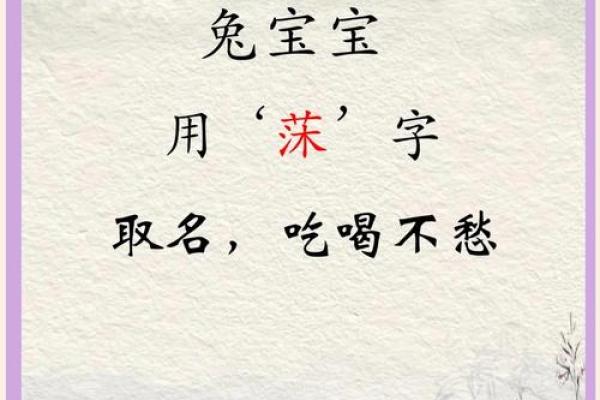 兔宝宝
用‘莯’字
取名，吃喝不愁